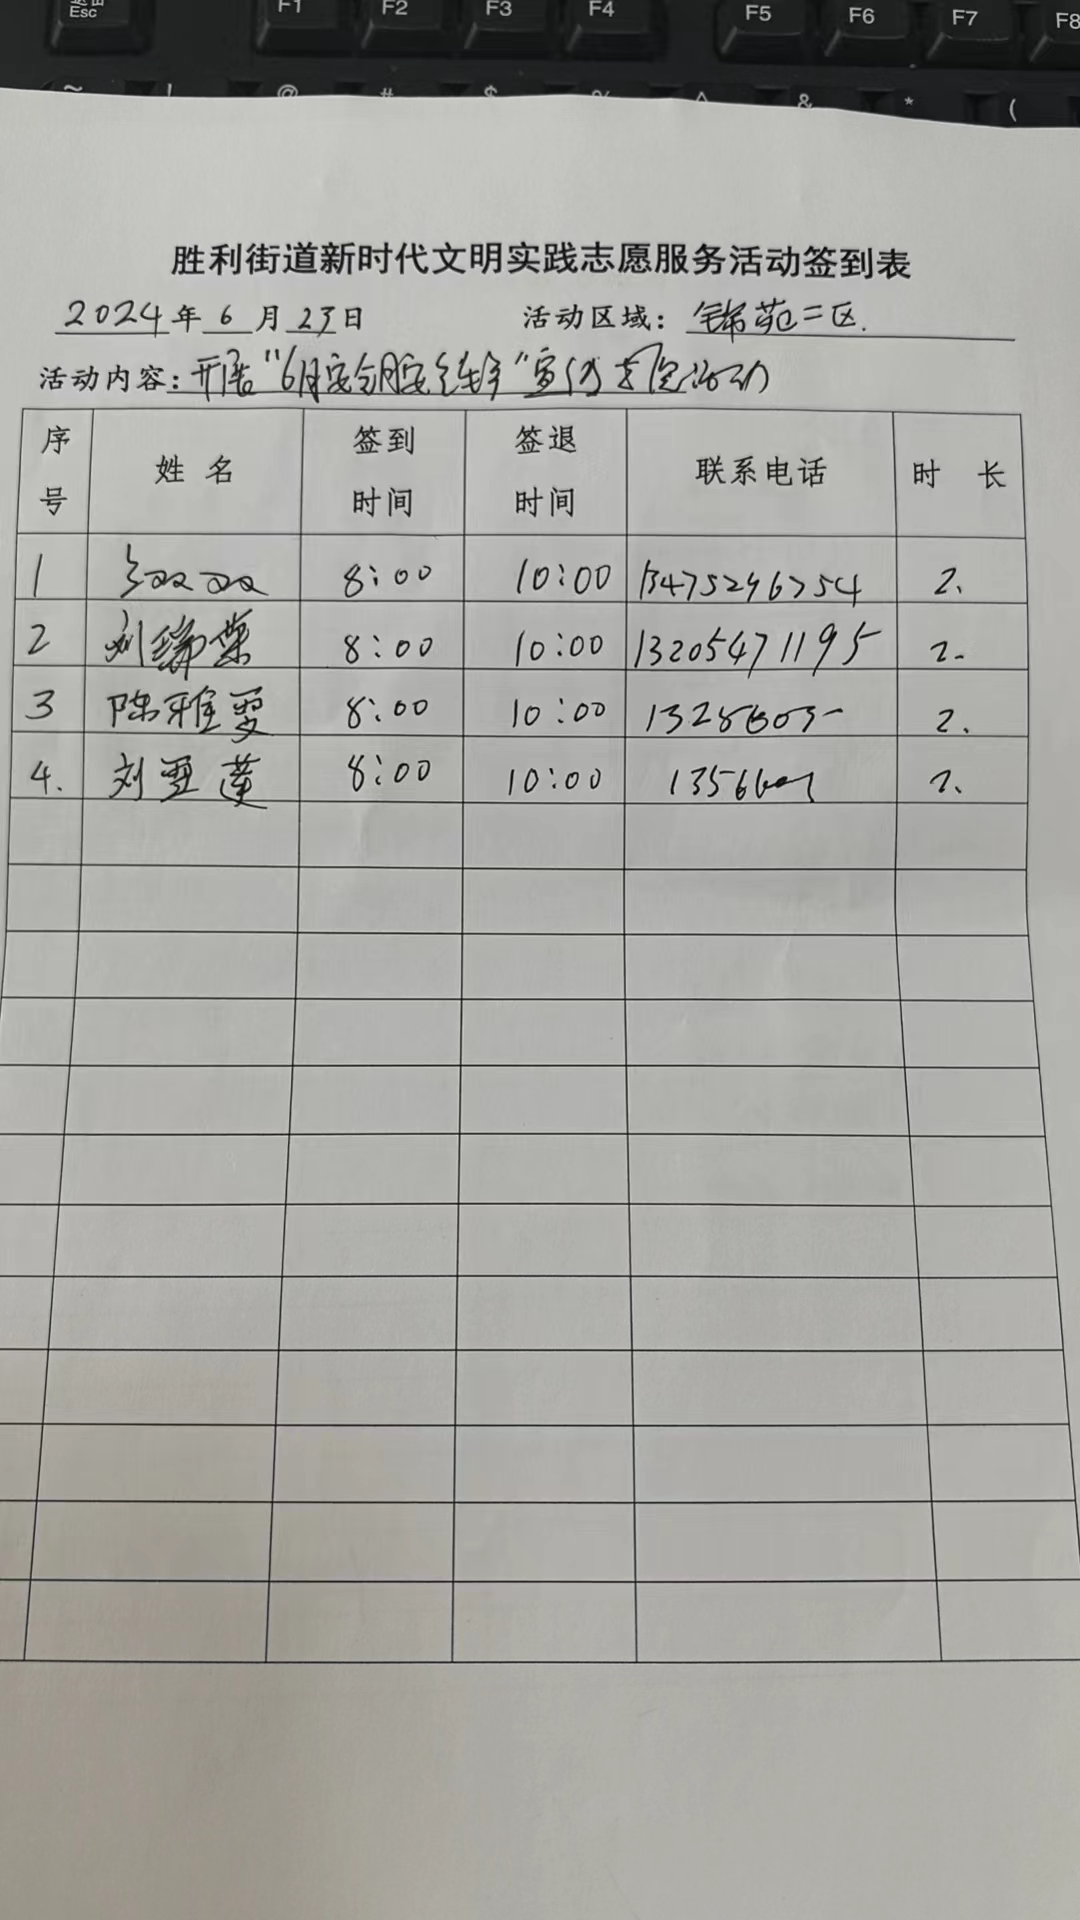 Esc F1 F2 F3 F4 F5 F6 F7 F8
~ ! @ # $ % ^ & * (
胜利街道新时代文明实践志愿服务活动签到表
2024年6月23日 活动区域：锦苑二区.
活动内容：开展"6月安全月安全生产"宣传 活动
序号 姓名 签到时间 签退时间 联系电话 时长
1 双双 8:00 10:00 13475296754 2.
2 刘 荣 8:00 10:00 13205471195 2.
3 陈雅雯 8:00 10:00 2.
4. 刘亚莲 8:00 10:00 2.